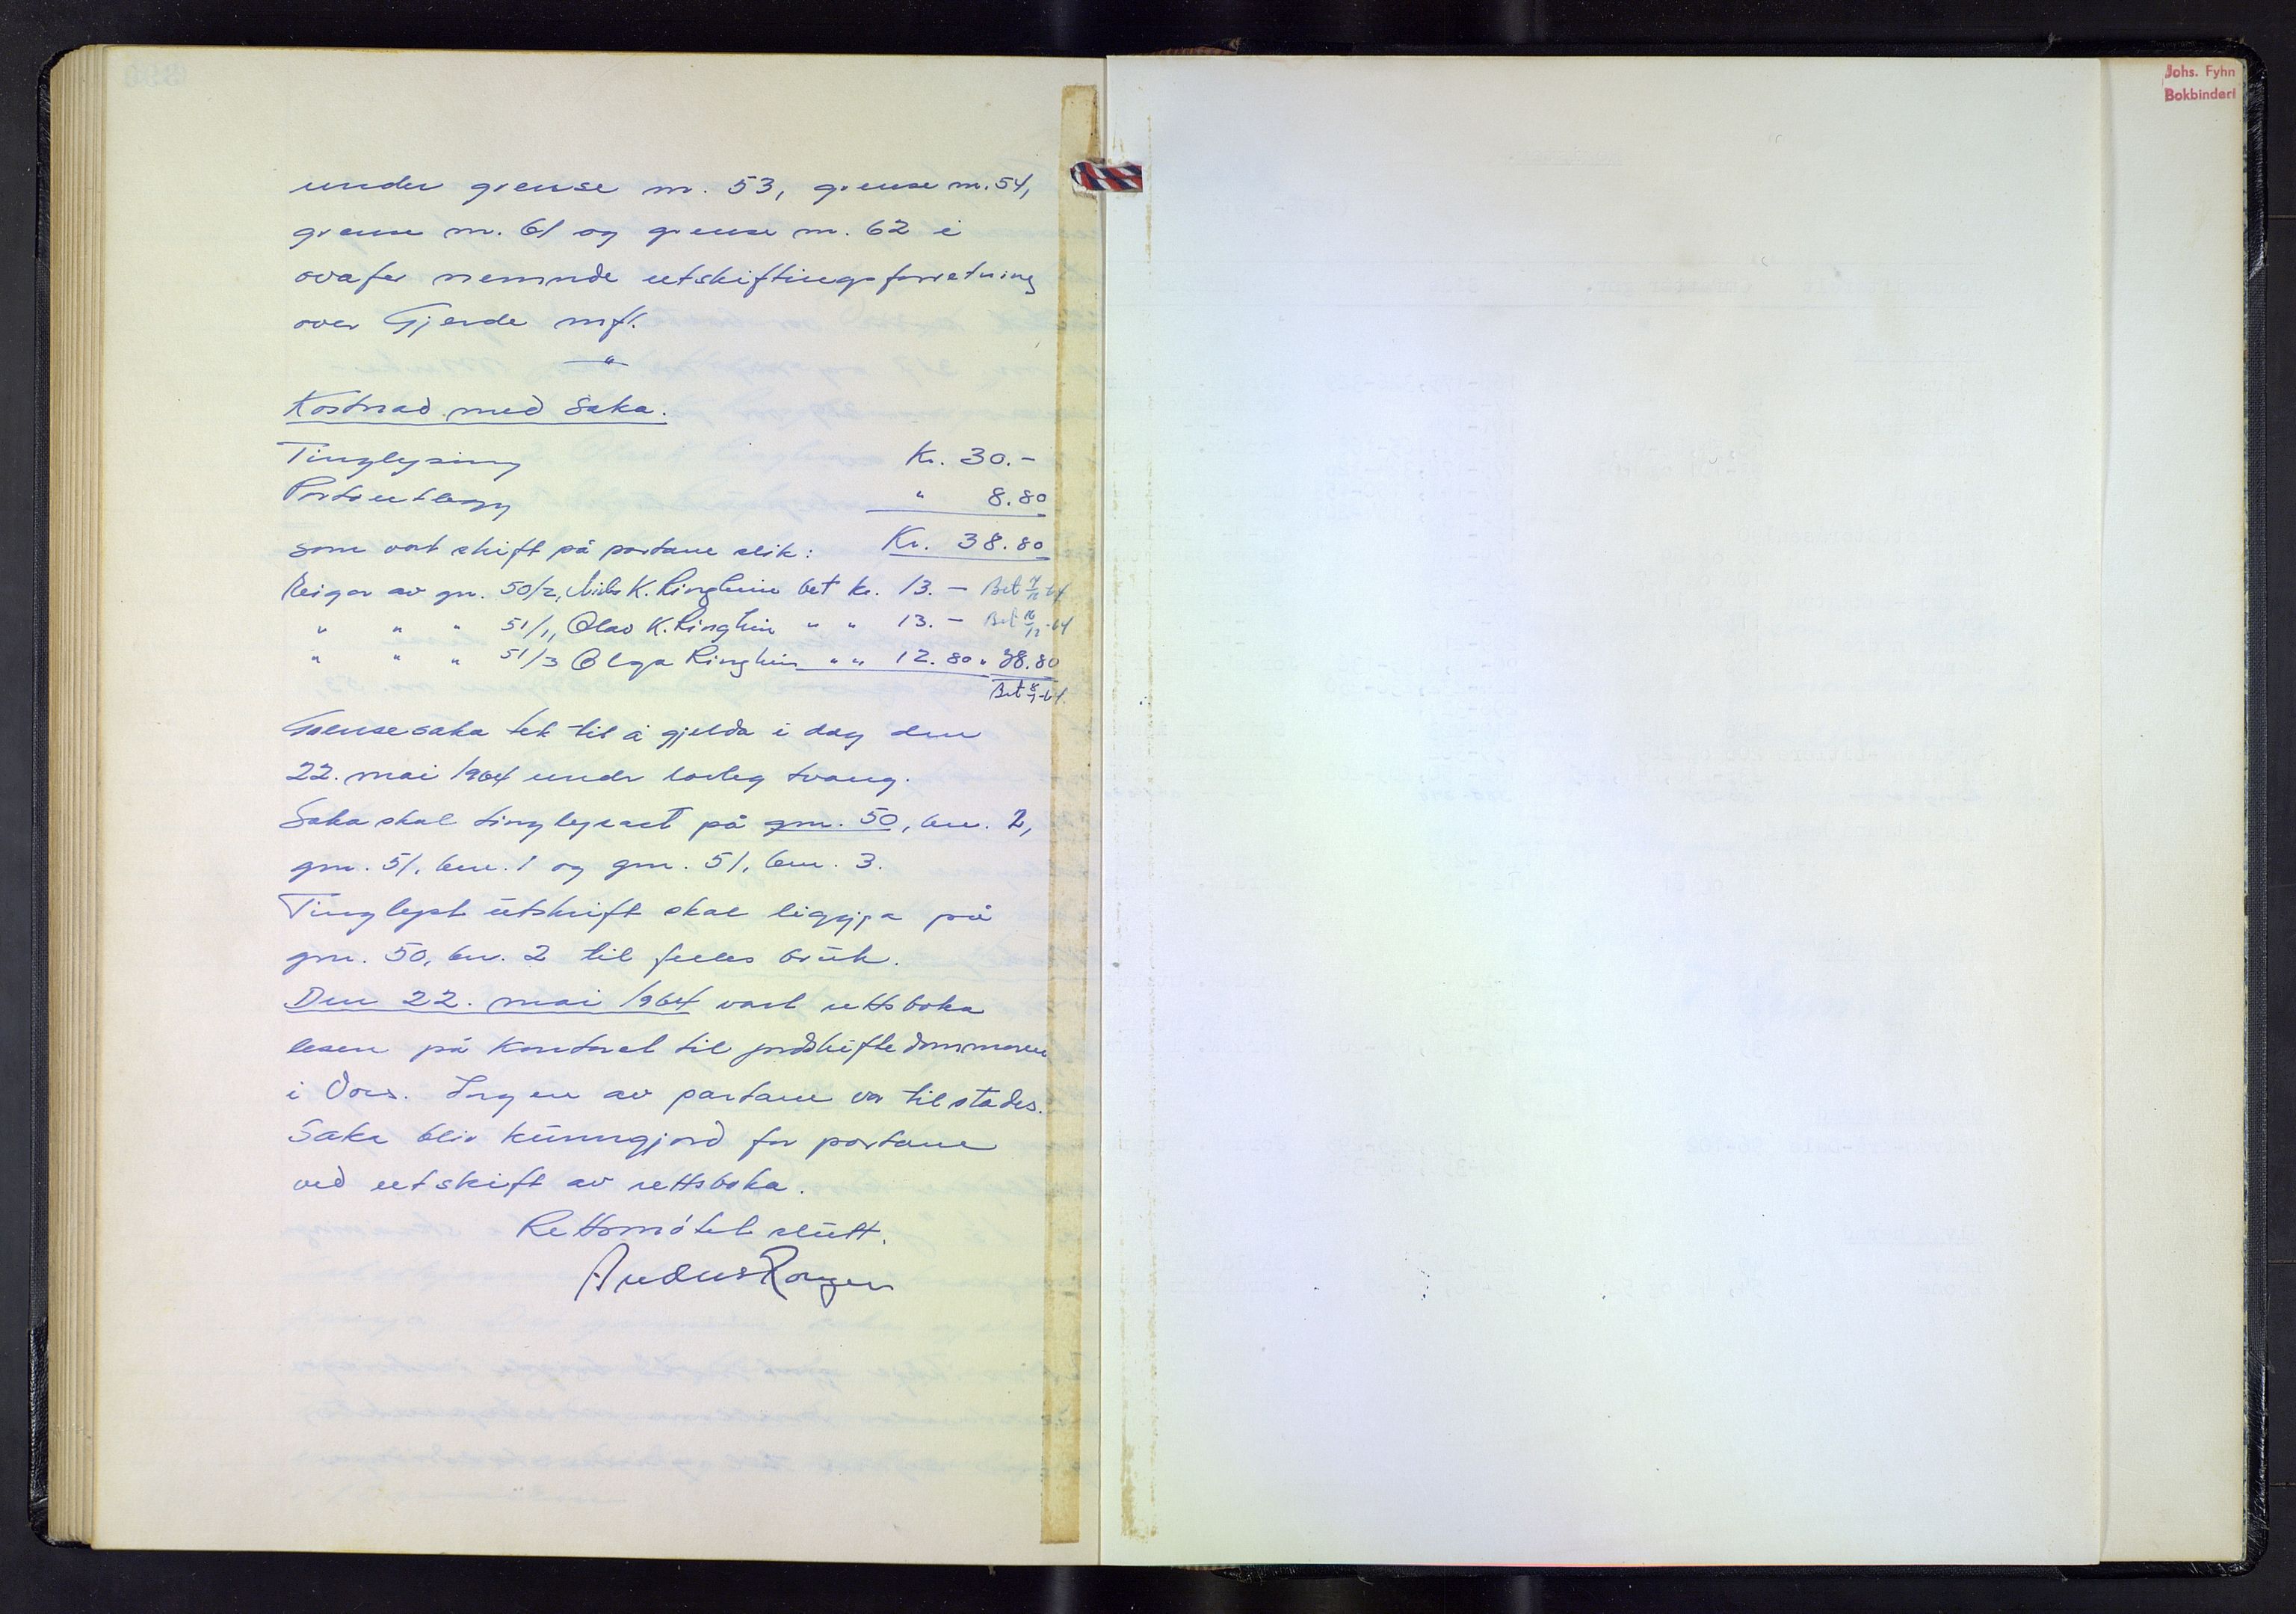 under grense nr. 53, grense nr. 54,
grense nr. 61 og grense nr. 62 i
ovafor nemnde utskiftingsforretning
over Gjerde mfl.
"
Kostnad med saka.
Tinglysing Kr. 30.-
Portoutlegg " 8.80
som vert skift på partane slik: Kr. 38.80
Eigar av gnr. 50/2, Nils K. Ringheim bet kr. 13.- Bet -64
" " " 51/1, Olav K. Ringheim " " 13.- Bet 16/12-64
" " " 51/3 Olga Ringheim " " 12.80 " 38.80
Bet -64.
Grensesaka tek til å gjelda i dag den
22. mai 1964 under lovleg tvang.
Saka skal tinglysast på gnr. 50, bnr. 2,
gnr. 51, bnr. 1 og gnr. 51, bnr. 3.
Tinglyst utskrift skal liggja på
gnr. 50, bnr. 2 til felles bruk.
Den 22. mai 1964 vart rettsboka
lesen på kontoret til jordskiftedommaren
i Voss. Ingen av partane var tilstades.
Saka blir kunngjord for partane
ved utskrift av rettsboka.
Rettsmøtet slutt.
Johs. Fyhn
Bokbinderi